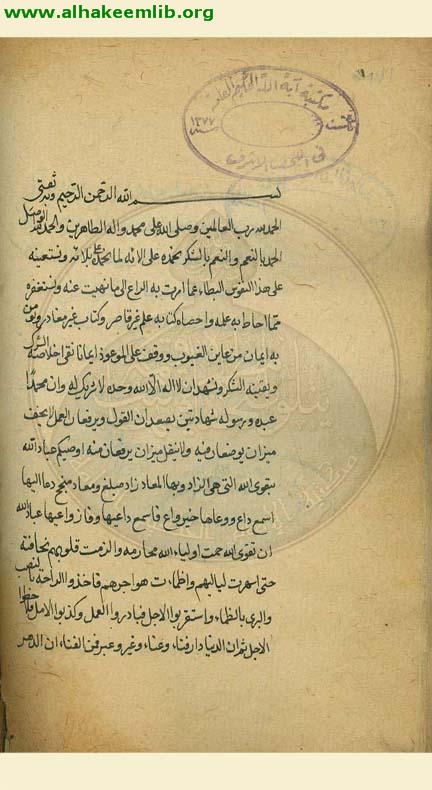 www.alhakeemlib.org
مكتبة آية الله الحكيم العامة
سنة ١٣٧٧
في النجف الاشرف
بسم الله الرحمن الرحيم وبه ثقتي
الحمد لله رب العالمين وصلى الله على محمد واله الطاهرين والحمد لله الواصل
الحمد بالنعم والنعم بالشكر نحمده على الائه كما نحمده على بلائه ونستعينه
على هذه النفوس البطاء عما امرت به السراع الى ما نهيت عنه ونستغفره
مما احاط به علمه واحصاه كتابه علم غير قاصر وكتاب غير مغادر ونؤمن
به ايمان من عاين الغيوب ووقف على الموعود ايمانا نفى اخلاصه الشرك
ويقينه الشك ونشهد ان لا اله الا الله وحده لا شريك له وان محمدا
عبده ورسوله شهادتين يصعدان القول ويرفعان العمل لا يخف
ميزان يوضعان فيه ولا يثقل ميزان يرفعان منه اوصيكم عباد الله
بتقوى الله التي هي الزاد وبها المعاد زاد مبلغ ومعاد منجح دعا اليها
اسمع داع ووعاها خير واع فاسمع داعيها وفاز واعيها عباد الله
ان تقوى الله حمت اولياء الله محارمه والزمت قلوبهم مخافته
حتى اسهرت لياليهم واظمات هواجرهم فاخذوا الراحة بالنصب
والري بالظماء واستقربوا الاجل فبادروا العمل وكذبوا الامل فلاحظوا
الاجل ثم ان الدنيا دار فناء وعناء وغير وعبر فمن الفناء ان الدهر